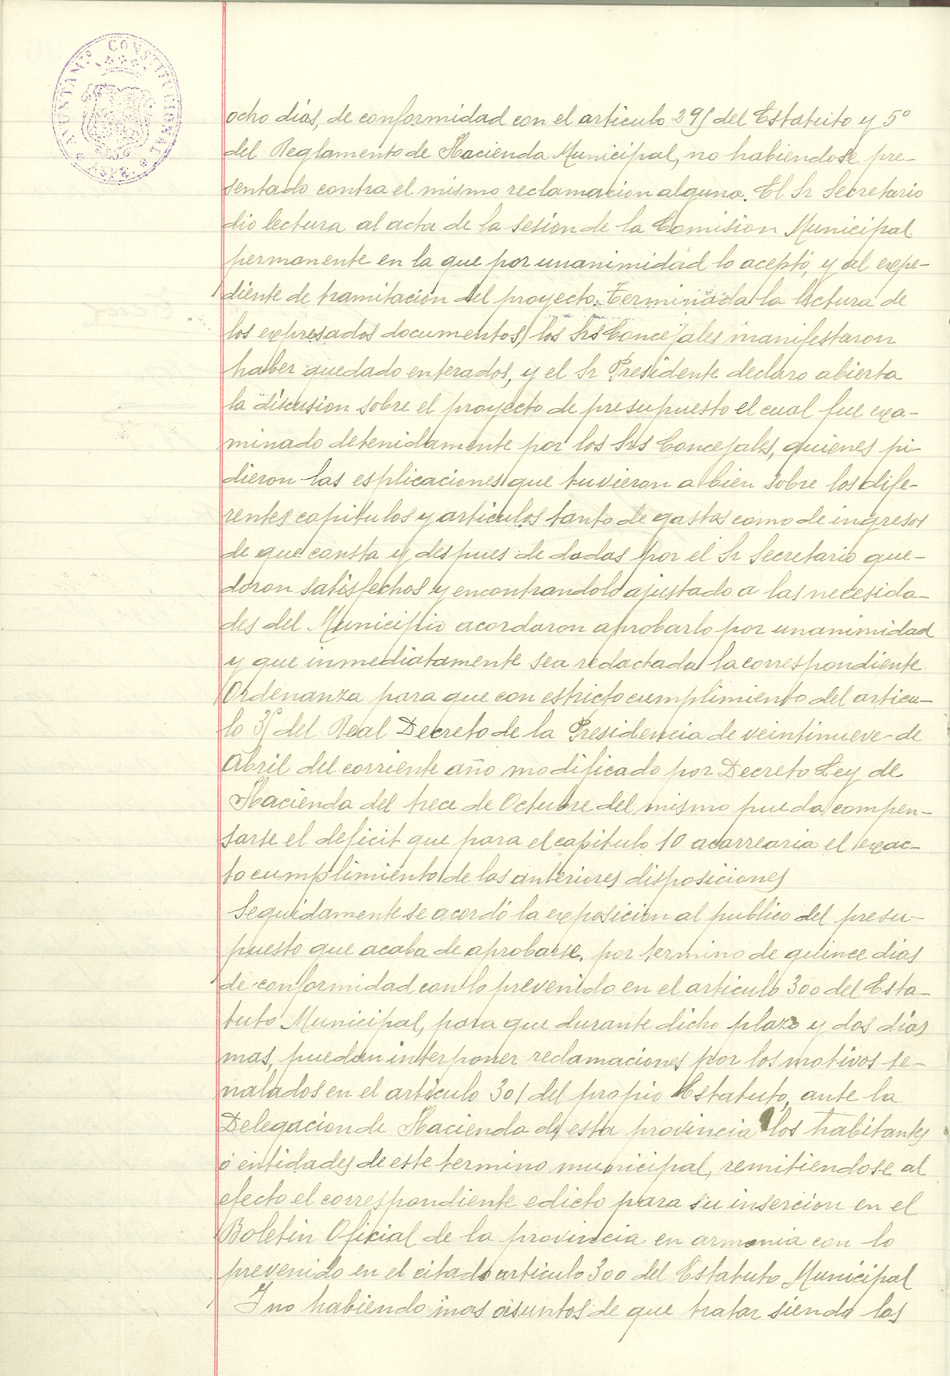 AYUNTAM.to CONSTITUCIONAL
ocho dias, de conformidad con el articulo 295 del Estatuto y 5º
del Reglamento de Hacienda Municipal, no habiendose pre-
sentado contra el mismo reclamacion alguna. El Sr Secretario
dio lectura al acta de la sesion de la Comision Municipal
permanente en la que por unanimidad lo aceptó, y al expe-
diente de tramitación del proyecto. Terminada la lectura de
los expresados documentos, los Srs Concejales manifestaron
haber quedado enterados, y el Sr Presidente declaro abierta
la discusion sobre el proyecto de presupuesto el cual fue exa-
minado detenidamente por los Srs Concejales, quienes pi-
dieron las esplicaciones que tuvieron a bien sobre los dife-
rentes capitulos y articulos tanto de gastos como de ingresos
de que consta y despues de dadas por el Sr Secretario que-
daron satisfechos y encontrandolo ajustado a las necesida-
des del Municipio acordaron aprobarlo por unanimidad
y que inmediatamente sea redactada la correspondiente
Ordenanza para que con estricto cumplimiento del articu-
lo 3º del Real Decreto de la Presidencia de veintinueve de
Abril del corriente año modificado por Decreto Ley de
Hacienda del trece de Octubre del mismo pueda compen-
sarse el deficit que para el capitulo 10 acarrearia el exac-
to cumplimiento de las anteriores disposiciones
Seguidamente se acordó la exposición al publico del presu-
puesto que acaba de aprobarse, por termino de quince dias
de conformidad con lo prevenido en el articulo 300 del Esta-
tuto Municipal, para que durante dicho plazo y dos días
mas, puedan interponer reclamaciones por los motivos se-
nalados en el artículo 301 del propio Estatuto, ante la
Delegacion de Hacienda de esta provincia los habitantes
ó entidades de este termino municipal, remitiendose al
efecto el correspondiente edicto para su insercion en el
Boletin Oficial de la provincia en armonia con lo
prevenido en el citado articulo 300 del Estatuto Municipal
Y no habiendo mas asuntos de que tratar siendo las